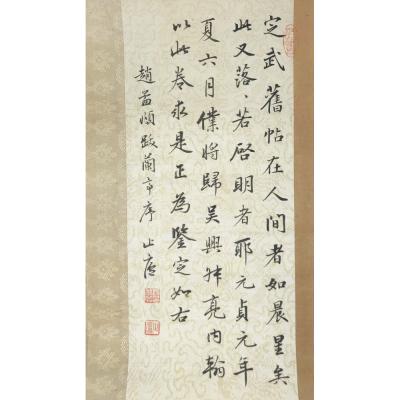 定武舊帖在人間者如晨星矣
此又落〻若啓明者耶元貞元年
夏六月僕將歸吳興叔亮內翰
以此卷求是正為鑒定如右
趙孟頫跋蘭亭序 止唐